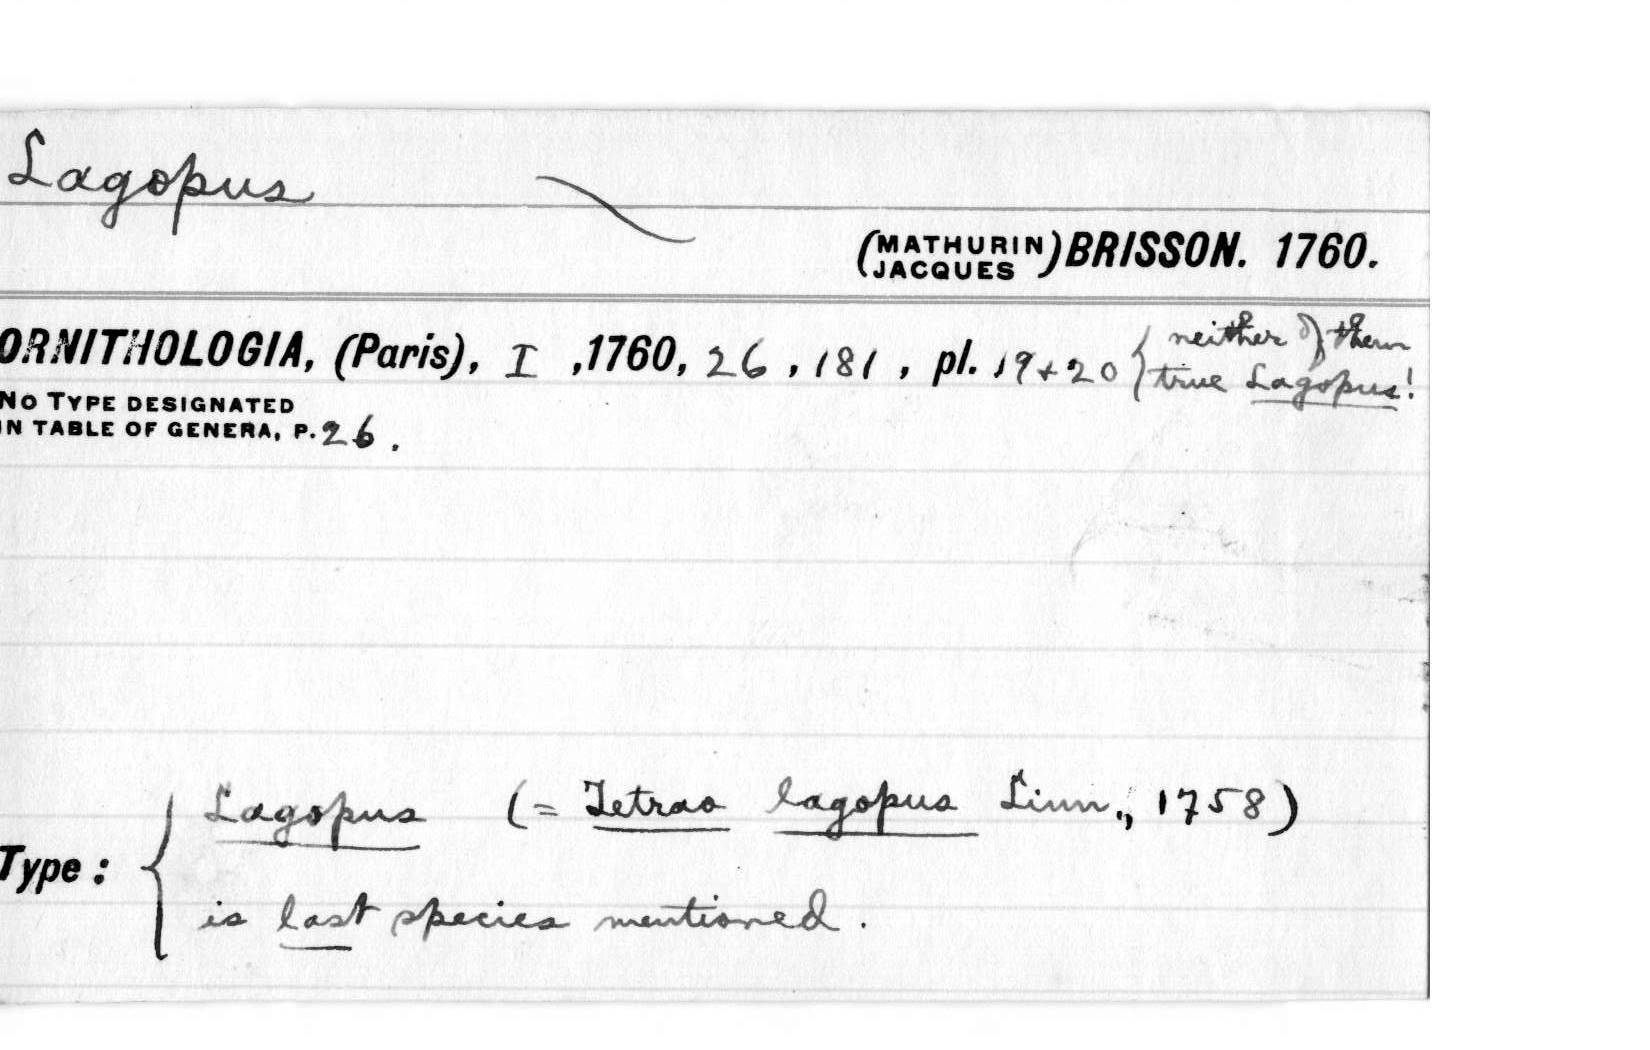 Lagopus
(MATHURIN JACQUES) BRISSON. 1760.
ORNITHOLOGIA, (Paris), I ,1760, 26 , 181 , pl. 19+20 { neither of them
true Lagopus!
NO TYPE DESIGNATED
IN TABLE OF GENERA, P. 26.
Lagopus (= Tetrao lagopus Linn., 1758)
Type: {
is last species mentioned.